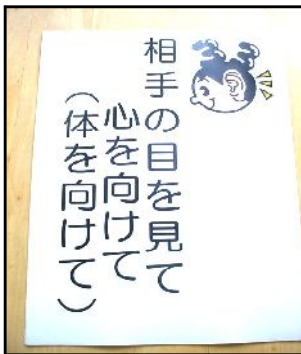 相手の目を見て
心を向けて
（体を向けて）